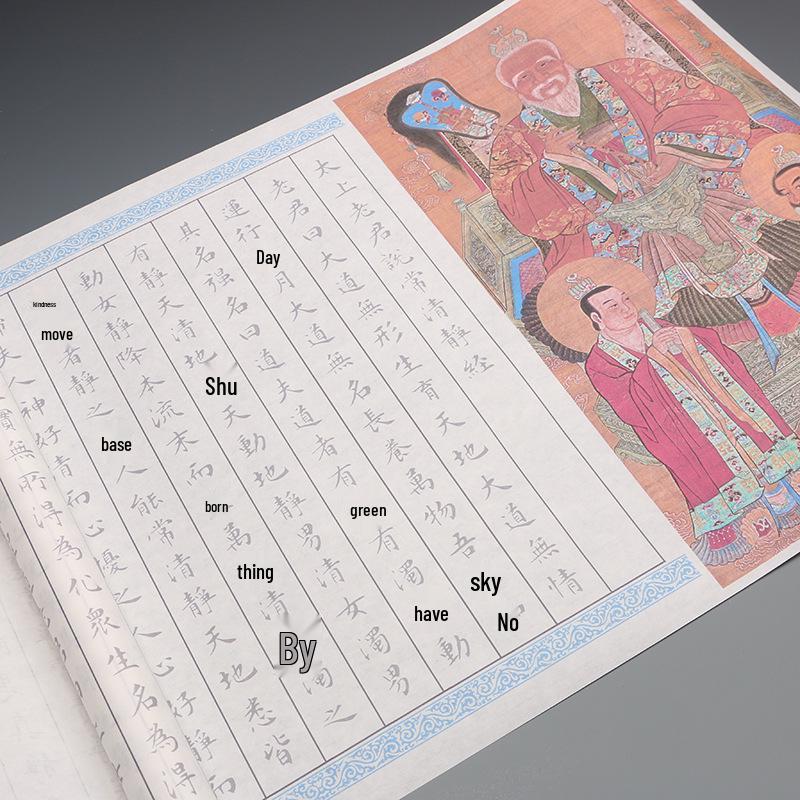 太上老君說常清靜経
老君曰大道無形生育天地大道無情
運行 Day 月大道無名長養萬物吾 sky No
其名强名曰道夫道者有 green 有濁 have 動
有靜天清地 Shu 天動地靜男清女濁男
動女靜降本流末而 born 萬 thing 清 By 濁之
kindness move 者靜之 base 人能常清靜天地悉皆
夫人神好清而心擾之人心好靜而
實無所得為化衆生名為得